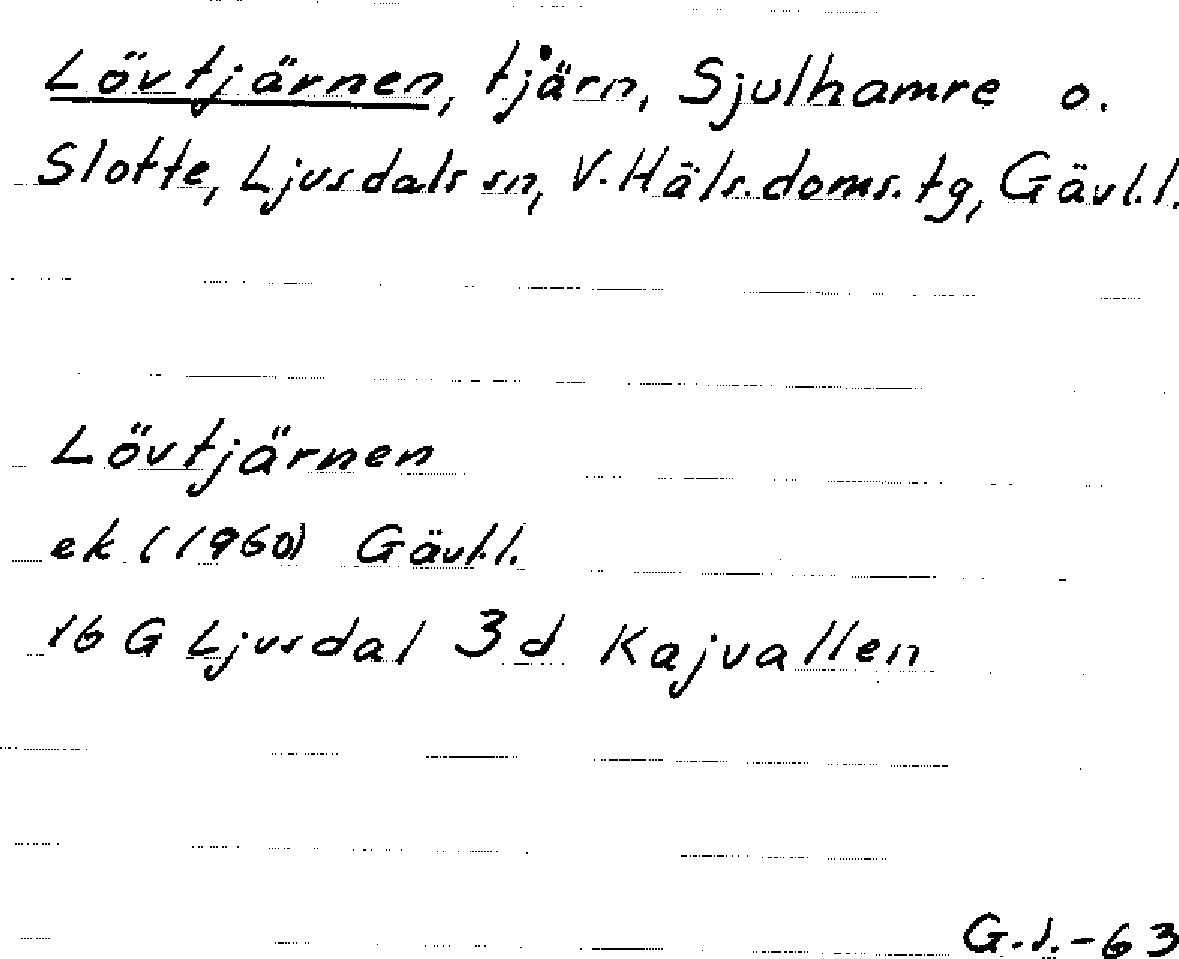 Lövtjärnen, tjärn, Sjulhamre o.
Slotte, Ljusdals sn, V. Häls. doms. tg, Gävl.l.
Lövtjärnen
ek (1960) Gävl.l.
16 G Ljusdal 3 d Kajvallen
G.J.-63